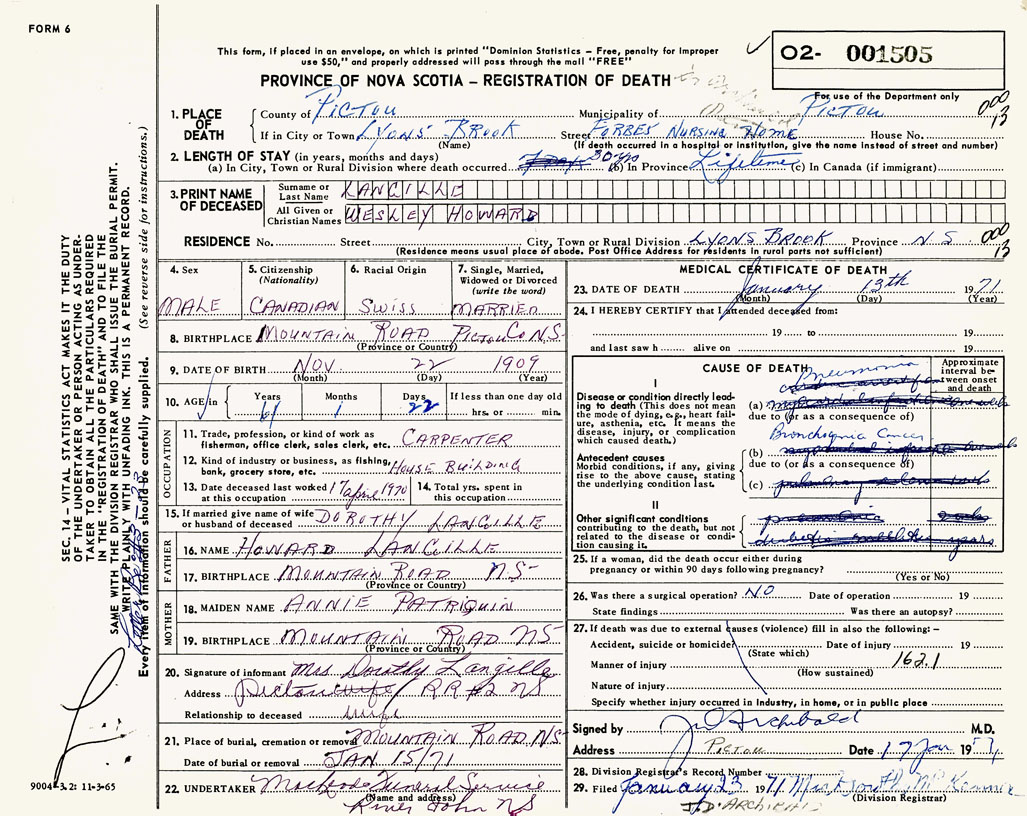 FORM 6
This form, if placed in an envelope, on which is printed "Dominion Statistics – Free, penalty for improper
use $50," and properly addressed will pass through the mail "FREE"
PROVINCE OF NOVA SCOTIA – REGISTRATION OF DEATH
02- 001505
For use of the Department only
1. PLACE OF DEATH
County of Pictou Municipality of Pictou
000
13
If in City or Town Lyons' Brook Street Forbes Nursing Home House No.
(Name) (If death occurred in a hospital or institution, give the name instead of street and number)
2. LENGTH OF STAY (in years, months and days)
(a) In City, Town or Rural Division where death occurred 30 yrs (b) In Province Lifetime (c) In Canada (if immigrant)
3. PRINT NAME OF DECEASED
Surname or Last Name LANGILLE
All Given or Christian Names WESLEY HOWARD
RESIDENCE No. Street City, Town or Rural Division LYONS BROOK Province N S
000
13
(Residence means usual place of abode. Post Office Address for residents in rural parts not sufficient)
4. Sex MALE
5. Citizenship (Nationality) CANADIAN
6. Racial Origin SWISS
7. Single, Married, Widowed or Divorced (write the word) MARRIED
8. BIRTHPLACE MOUNTAIN ROAD PICTOU CO N.S.
(Province or Country)
9. DATE OF BIRTH NOV 22 1909
(Month) (Day) (Year)
10. AGE in Years 61 Months 1 Days 22 If less than one day old
hrs. or min.
OCCUPATION
11. Trade, profession, or kind of work as
fisherman, office clerk, sales clerk, etc. CARPENTER
12. Kind of industry or business, as fishing,
bank, grocery store, etc. HOUSE BUILDING
13. Date deceased last worked
at this occupation 1 April 1970
14. Total yrs. spent in
this occupation
15. If married give name of wife
or husband of deceased DOROTHY LANGILLE
FATHER
16. NAME HOWARD LANGILLE
17. BIRTHPLACE MOUNTAIN ROAD N.S-
(Province or Country)
MOTHER
18. MAIDEN NAME ANNIE PATRIQUIN
19. BIRTHPLACE MOUNTAIN ROAD NS-
(Province or Country)
20. Signature of informant Mrs Dorothy Langille
Address Pictou RR #2 NS
Relationship to deceased wife
21. Place of burial, cremation or removal MOUNTAIN ROAD, NS-
Date of burial or removal JAN 15/71
22. UNDERTAKER Funeral Service
(Name and address)
River John NS
MEDICAL CERTIFICATE OF DEATH
23. DATE OF DEATH January 13th 1971
(Month) (Day) (Year)
24. I HEREBY CERTIFY that I attended deceased from:
19 to 19
and last saw h alive on 19
CAUSE OF DEATH
Approximate interval between onset and death
I
Disease or condition directly leading to death (This does not mean the mode of dying, e.g., heart failure, asthenia, etc. It means the disease, injury, or complication which caused death.)
Pneumonia
(a)
due to (or as a consequence of)
Bronchogenic Cancer
Antecedent causes
Morbid conditions, if any, giving rise to the above cause, stating the underlying condition last.
(b)
due to (or as a consequence of)
(c)
II
Other significant conditions contributing to the death, but not related to the disease or condition causing it.
25. If a woman, did the death occur either during
pregnancy or within 90 days following pregnancy?
(Yes or No)
26. Was there a surgical operation? NO Date of operation 19
State findings Was there an autopsy?
27. If death was due to external causes (violence) fill in also the following: –
Accident, suicide or homicide? Date of injury 19
(State which)
Manner of injury 162.1
(How sustained)
Nature of injury
Specify whether injury occurred in industry, in home, or in public place
Signed by Archibald M.D.
Address Pictou Date 17 Jan 1971
28. Division Registrar's Record Number
29. Filed January 23 1971
(Division Registrar)
J.D. ARCHIBALD
SEC. 14 – VITAL STATISTICS ACT MAKES IT THE DUTY
OF THE UNDERTAKER OR PERSON ACTING AS UNDER-
TAKER TO OBTAIN ALL THE PARTICULARS REQUIRED
IN THE "REGISTRATION OF DEATH" AND TO FILE THE
SAME WITH THE DIVISION REGISTRAR WHO SHALL ISSUE THE BURIAL PERMIT.
WRITE PLAINLY WITH UNFADING INK. THIS IS A PERMANENT RECORD.
Every item of information should be carefully supplied. (See reverse side for instructions.)
9004-3.2: 11-3-65